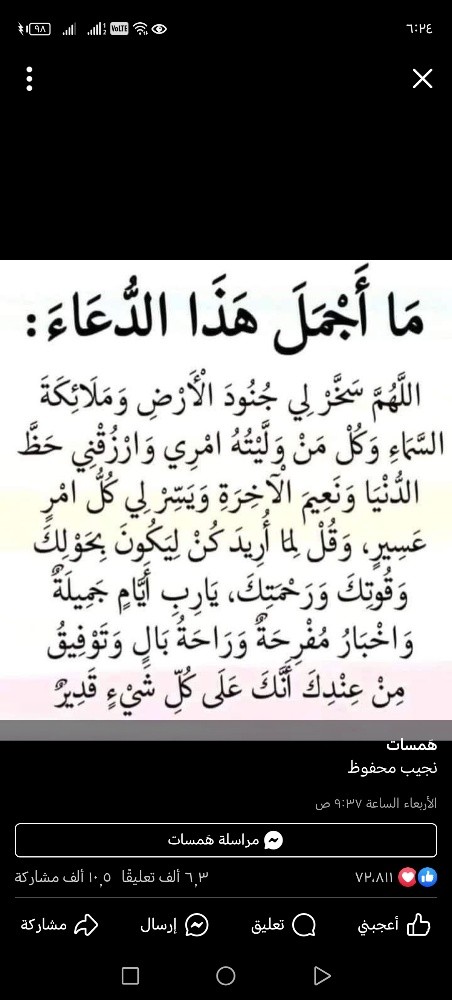 ٩٨
VoLTE
٦:٢٤
مَا أَجْمَلَ هَذَا الدُّعَاءَ:
اللَّهُمَّ سَخَّرْ لِي جُنُودَ الْأَرْضِ وَمَلَائِكَةَ
السَّمَاءِ وَكُلْ مَنْ وَلَّيْتُهُ امْرِي وَارْزُقْنِي حَظَّ
الدُّنْيَا وَنَعِيمَ الْآخِرَةِ وَيَسِّرْ لِي كُلُّ امْرٍ
عَسِيرٍ، وَقُلْ لِمَا أُرِيدَ كُنْ لِيَكُونَ بِحَوْلِكَ
وَقُوتِكَ وَرَحْمَتِكَ، يَارِبِ أَيَّامٍ جَمِيلَةٌ
وَاخْبَارُ مُفْرِحَةٌ وَرَاحَةُ بَالٍ وَتَوْفِيقُ
مِنْ عِنْدِكَ أَنَّكَ عَلَى كُلِّ شَيْءٍ قَدِيرٌ
همسات
نجيب محفوظ
الأربعاء الساعة ٩:٣٧ ص
مراسلة همسات
٧٢،٨١١
٦,٣ ألف تعليقًا ١٠,٥ ألف مشاركة
أعجبني تعليق إرسال مشاركة